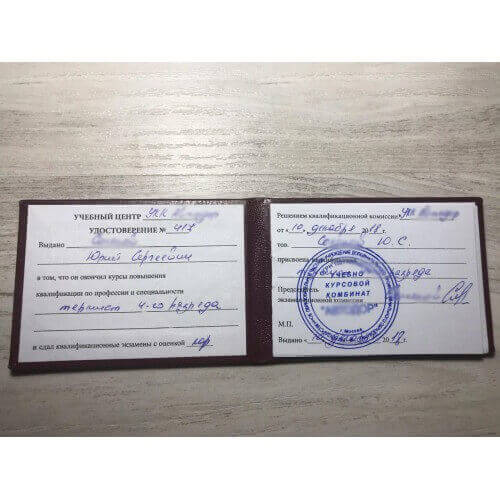 УЧЕБНЫЙ ЦЕНТР УКК
УДОСТОВЕРЕНИЕ № 417
Выдано
Юрий Сергеевич
в том, что он окончил курсы повышения
квалификации по профессии и специальности
термист 4-го разряда
и сдал квалификационные экзамены с оценкой хор.
Решением квалификационной комиссии УКК
от « 10 » декабря 2018 г.
тов. Ю. С.
присвоена
разряда
Председатель
экзаменационной комиссии
УЧЕБНО
КУРСОВОЙ
КОМБИНАТ
г. Москва
М.П.
Выдано « 10 » 2018 г.